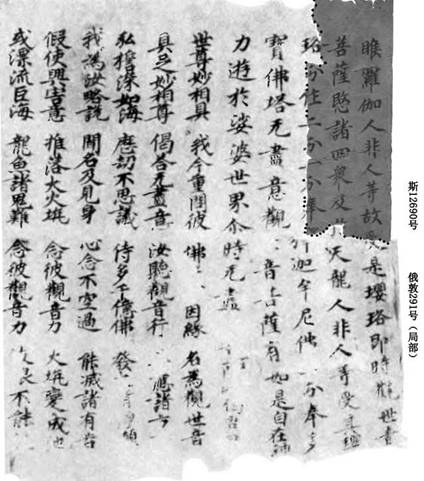 睺羅伽人非人等故受是瓔珞即時觀世音
菩薩愍諸四眾及於天龍人非人等受其瓔
珞分作二分一分奉釋迦牟尼佛一分奉多
寶佛塔无盡意觀音菩薩有如是自在神
力遊於娑婆世界尒時无盡
世尊妙相具 我今重問彼 佛 因緣 名為觀世音
具足妙相尊 偈荅无盡意 汝聽觀音行 應諸方
弘誓深如海 歷劫不思議 侍多千億佛 發 淨願
我為汝略說 聞名及見身 心念不空過 能滅諸有苦
假使興害意 推落大火坑 念彼觀音力 火坑變成池
或漂流巨海 龍魚諸鬼難 念彼觀音力 波浪不能
斯12690号
俄敦291号（局部）